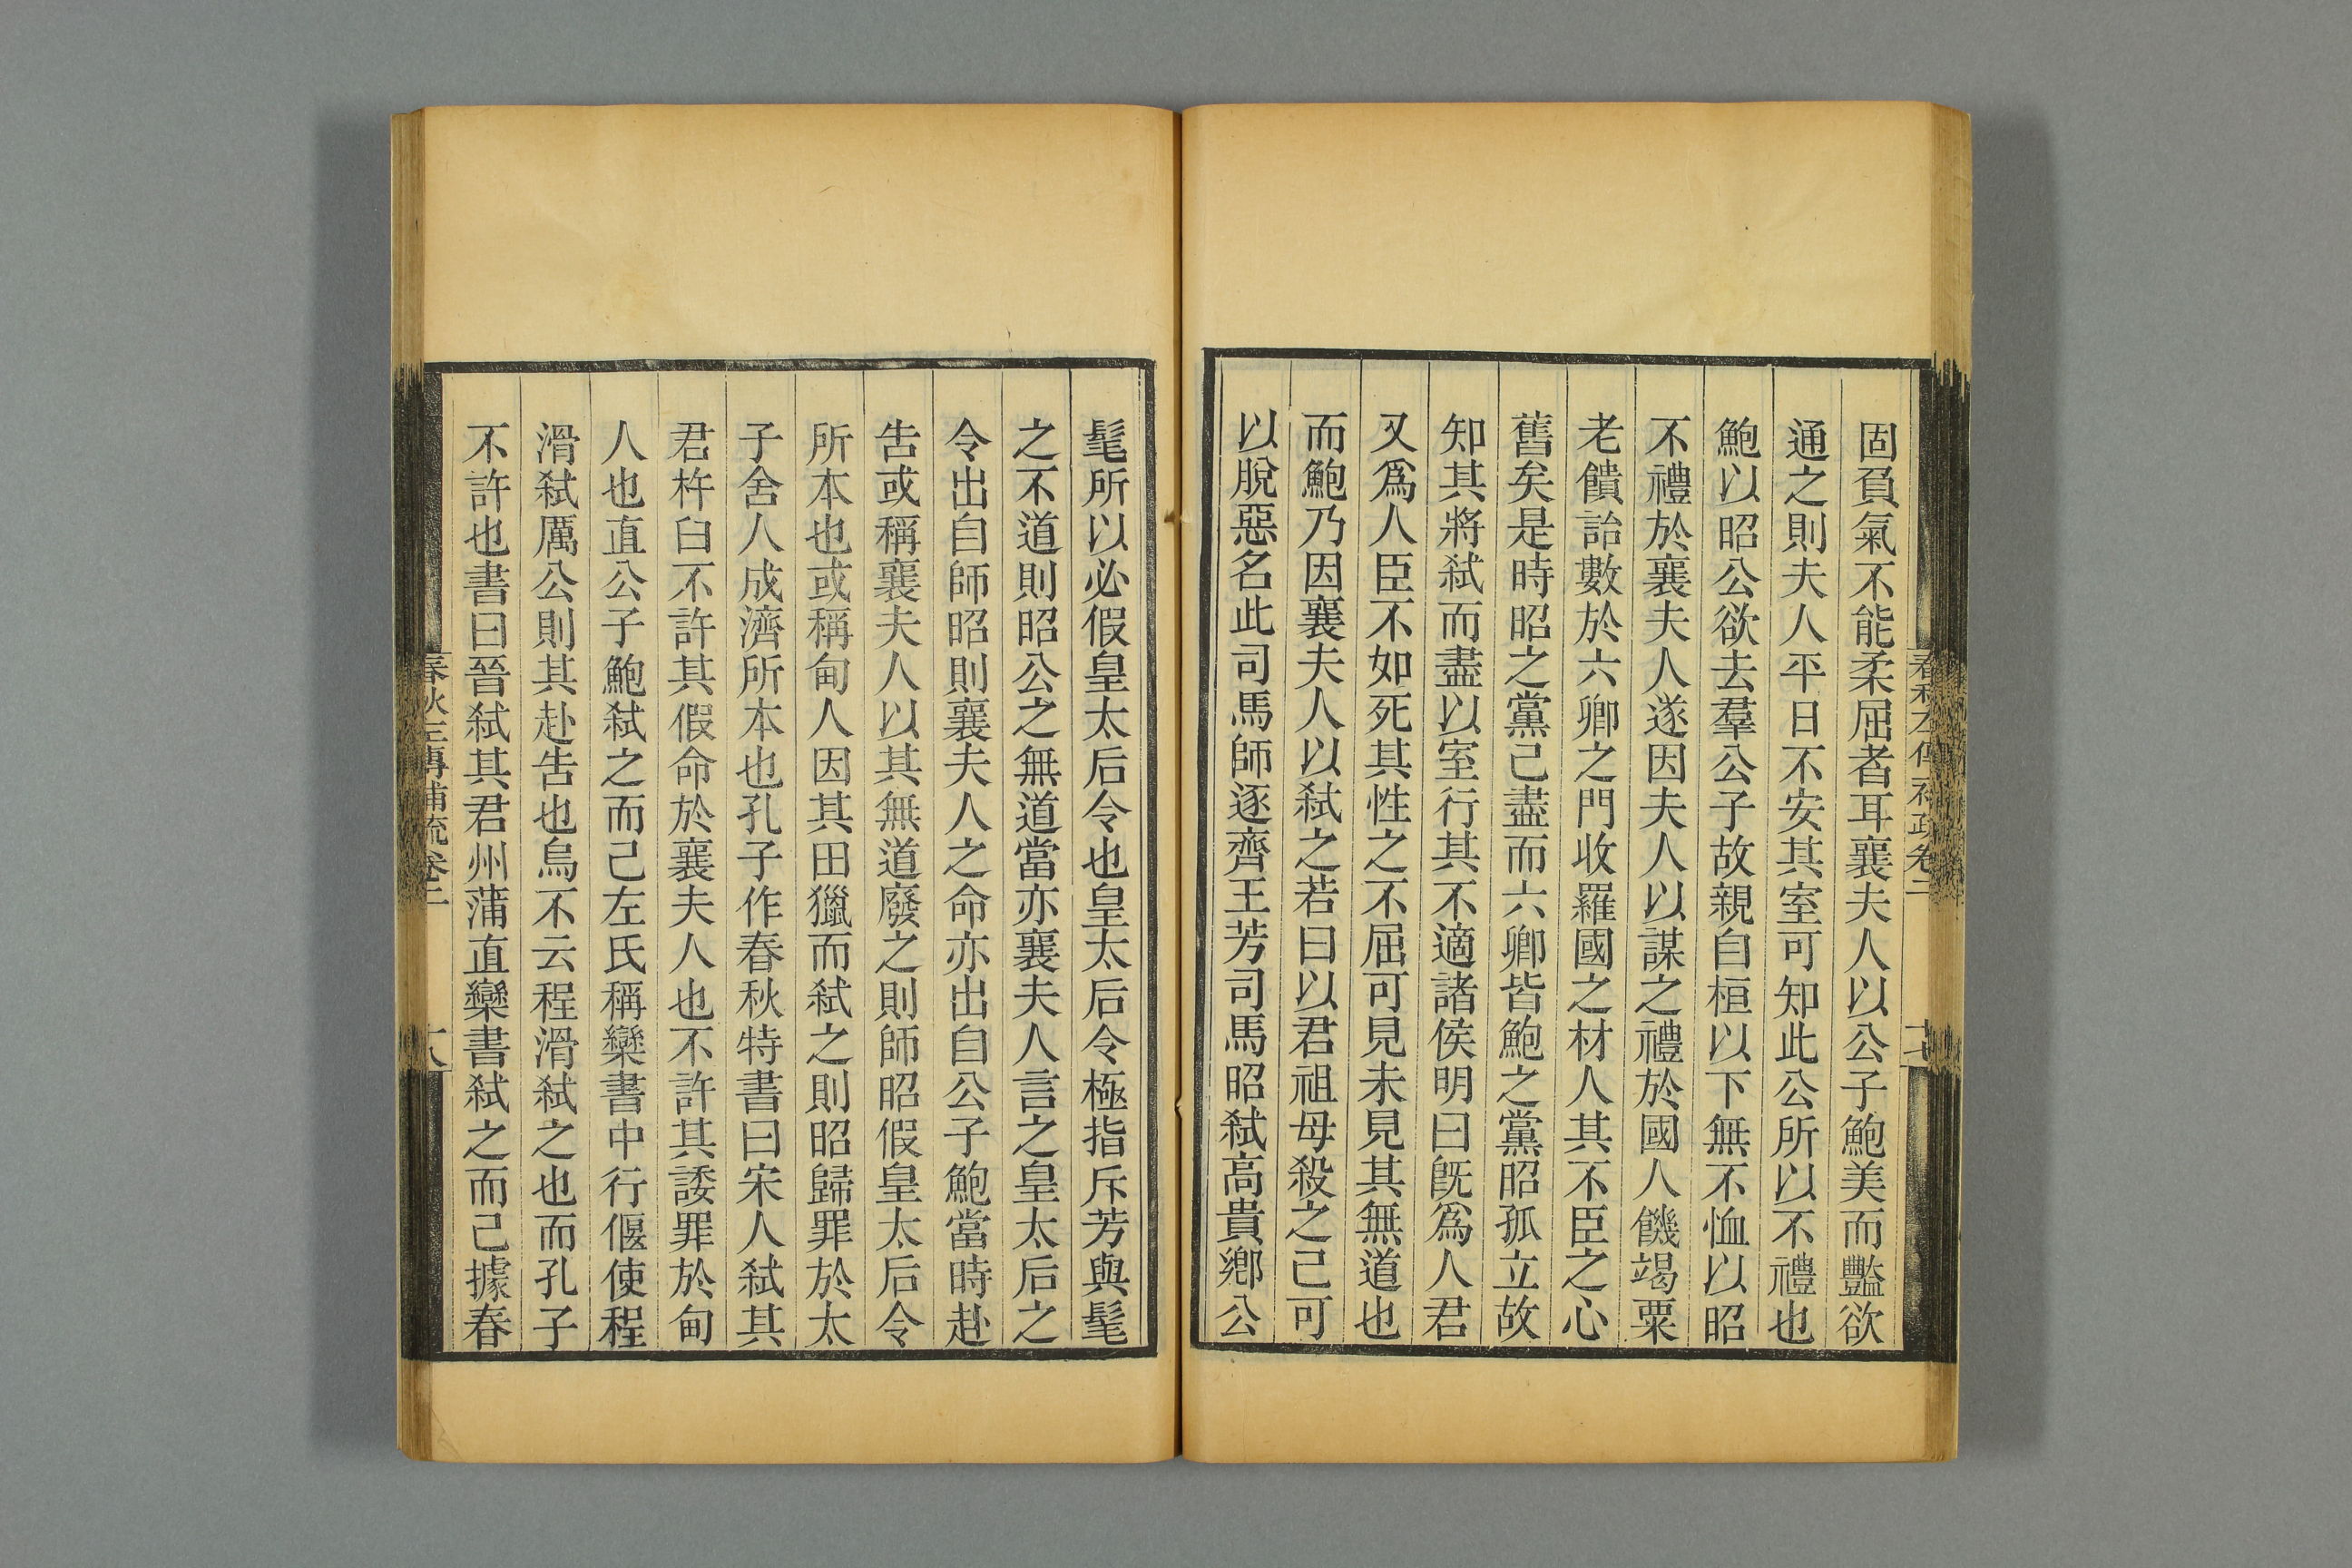 固負氣不能柔屈者耳襄夫人以公子鮑美而豔欲
通之則夫人平日不安其室可知此公所以不禮也
鮑以昭公欲去羣公子故親自桓以下無不恤以昭
不禮於襄夫人遂因夫人以謀之禮於國人饑竭粟
老饋詒數於六卿之門收羅國之材人其不臣之心
舊矣是時昭之黨己盡而六卿皆鮑之黨昭孤立故
知其將弑而盡以室行其不適諸侯明曰旣爲人君
又爲人臣不如死其性之不屈可見未見其無道也
而鮑乃因襄夫人以弑之若曰以君祖母殺之己可
以脫惡名此司馬師逐齊王芳司馬昭弑高貴鄕公
髦所以必假皇太后令也皇太后令極指斥芳與髦
之不道則昭公之無道當亦襄夫人言之皇太后之
令出自師昭則襄夫人之命亦出自公子鮑當時赴
告或稱襄夫人以其無道廢之則師昭假皇太后令
所本也或稱甸人因其田獵而弑之則昭歸罪於太
子舍人成濟所本也孔子作春秋特書曰宋人弑其
君杵臼不許其假命於襄夫人也不許其諉罪於甸
人也直公子鮑弑之而己左氏稱欒書中行偃使程
滑弑厲公則其赴告也烏不云程滑弑之也而孔子
不許也書曰晉弑其君州蒲直欒書弑之而己據春
春秋左傳補疏卷二
十七
春秋左傳補疏卷二
十八